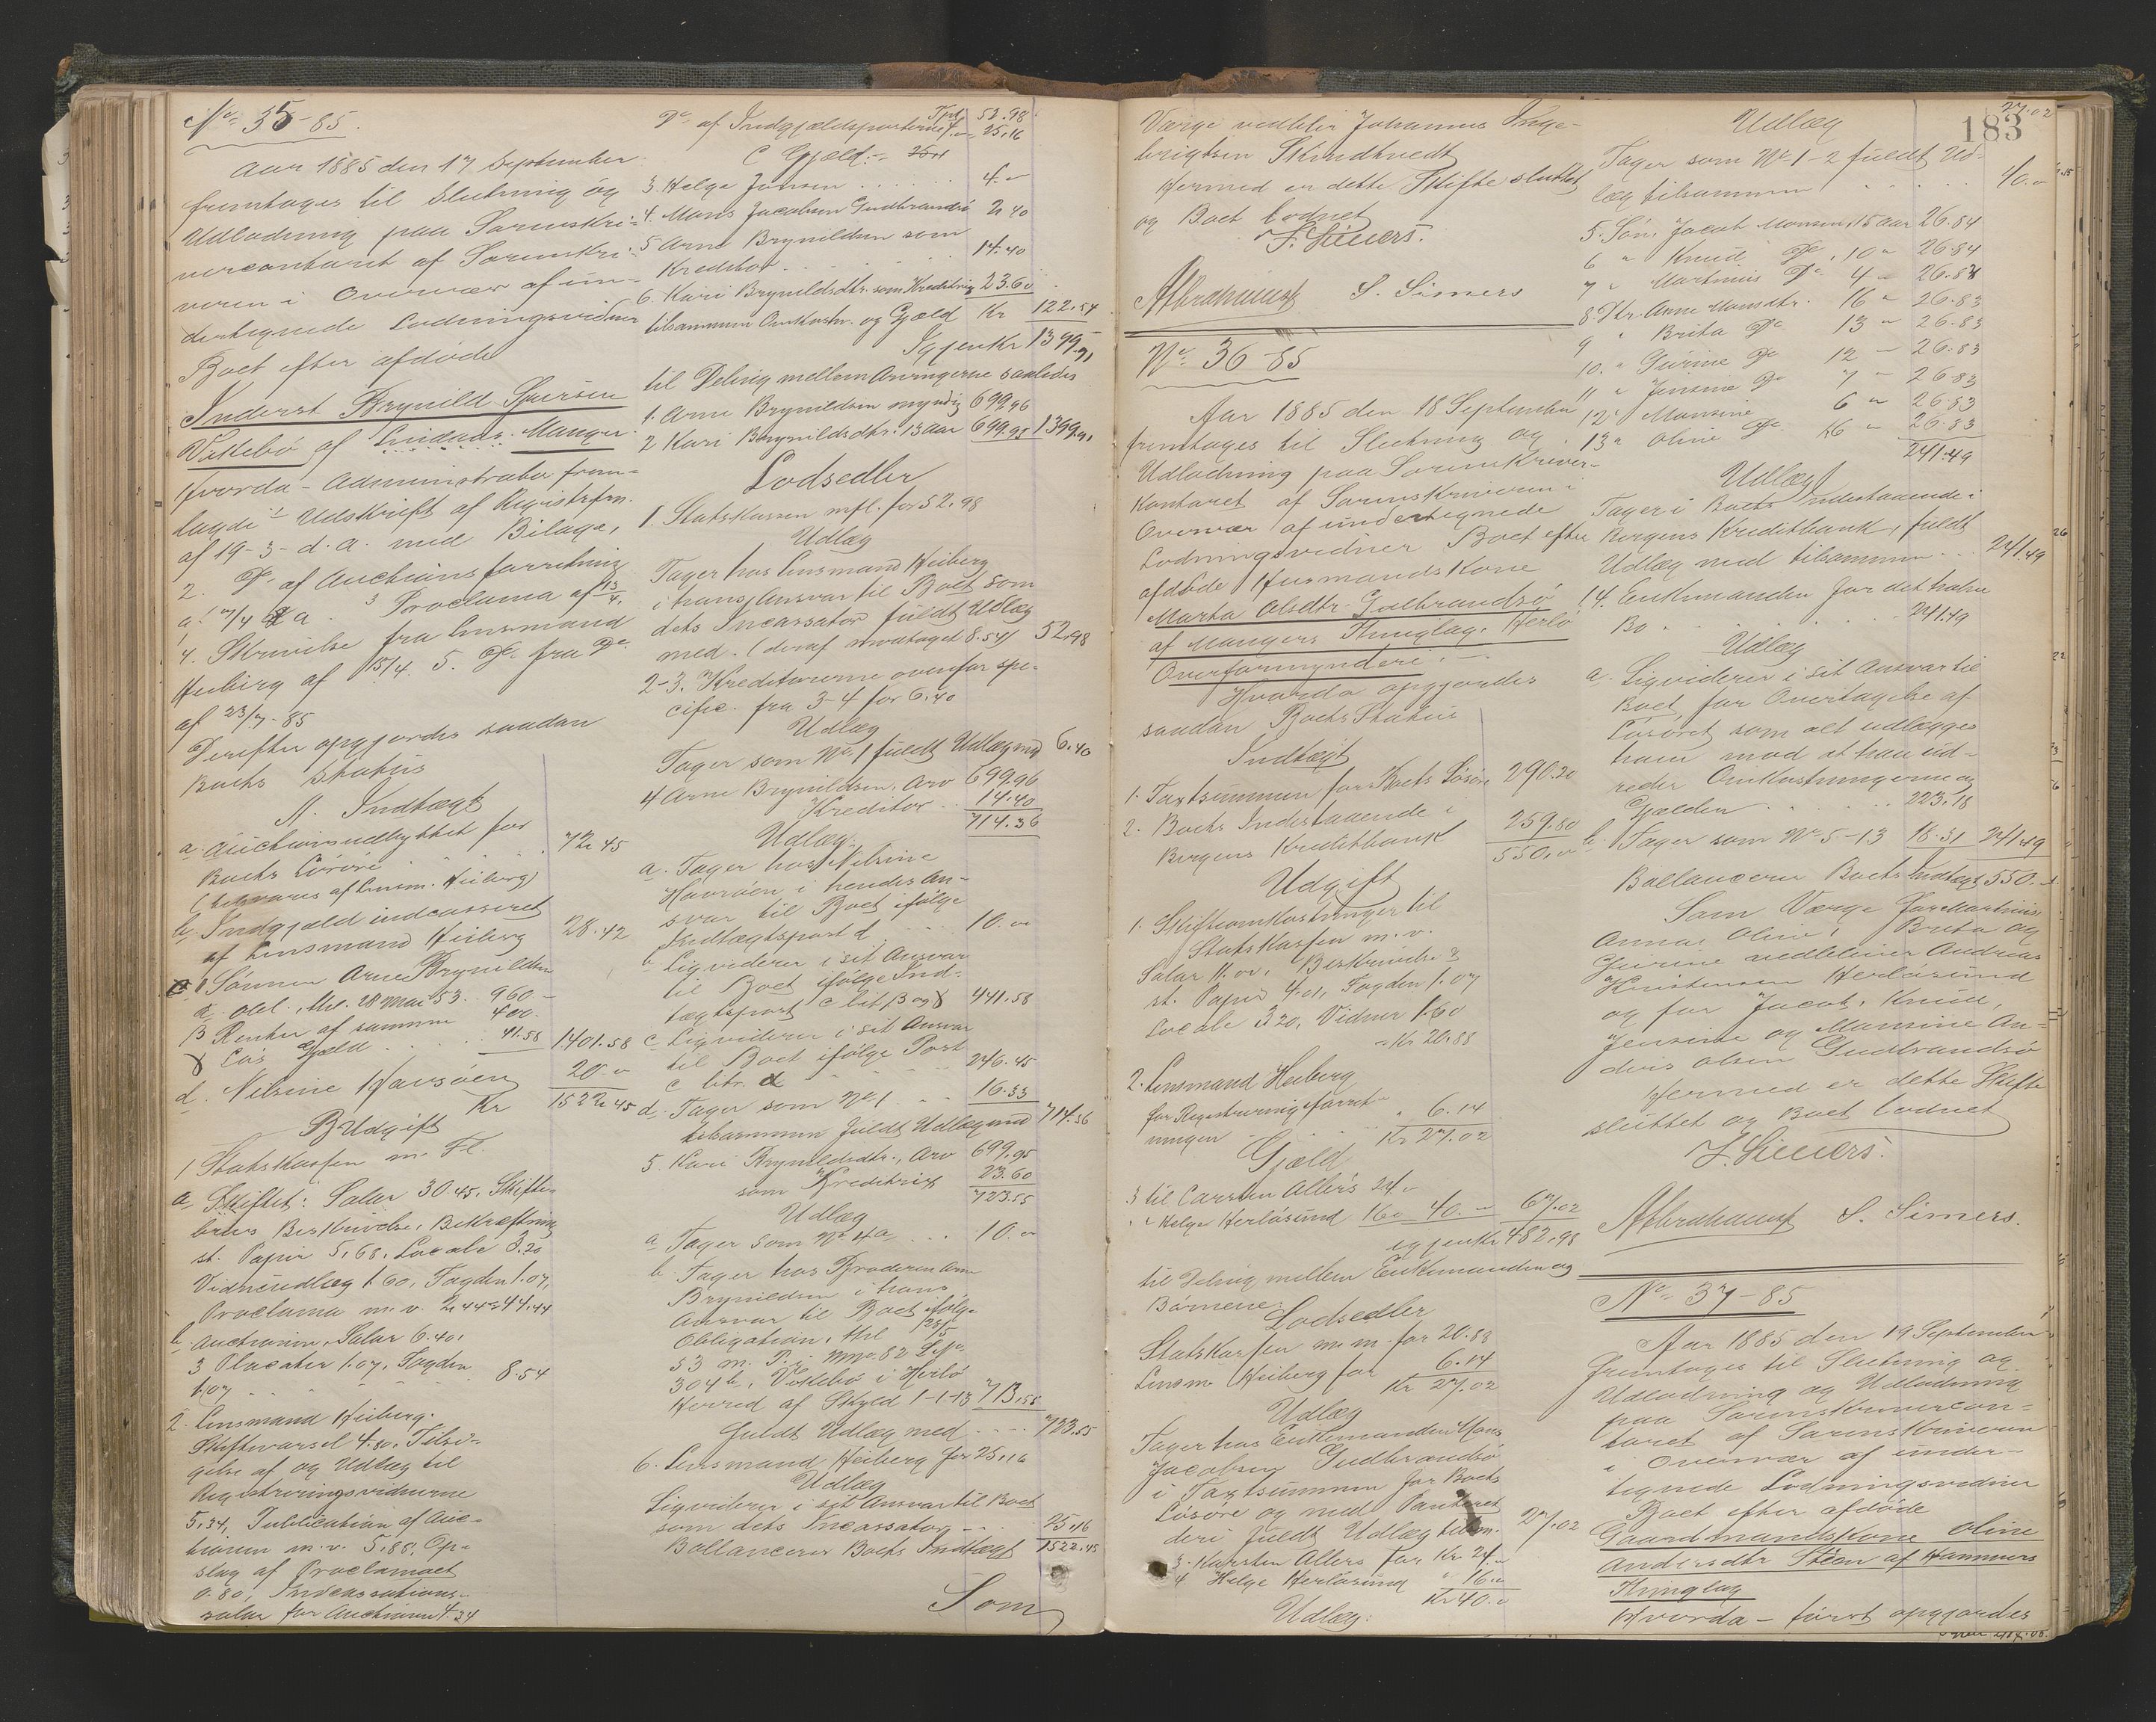 No 35-85.
Aar 1885 den 17 September
fremtages til Slutning og
Udlodning paa Sorenskri-
vercontoret af Sorenskri-
veren i Overvær af un-
dertegnede Lodningsvidner
Boet efter afdøde
Inderst Brynild Sjursen
Vikebø af Manger
Hvorda - Administrator frem-
lagde 1 Udskrift af Registrfrn.
af 19-3- d. a. med Bilage,
2. Do af Auctionsforretning
a 3 Proclama af 15/4.
4. Skrivelse fra Lensmand
Heiberg af 15/4. 5. Do fra Do
af 23/7-85
Derefter opgjordes saadan
Boets Status
A. Indtægt
a. Auctionsudbyttet for
Boets Løsøre 72.45
(besvares af Lensm. Heiberg)
b. Indgjæld indcasseret
af Lensmand Heiberg 28.42
c Sønnen Arne Brynildsen
α obl., thl. 28 Mai 53. 960 -
β Renter af samme 400.
γ Løs Gjæld 41.58 1401.58
d. Nilsine Havsøen 20.00
Kr 1522.45
B Udgift
1 Statskassen m. Fl.
a Skiftet: Salær 30.45. Skifte-
brevs Beskrivelse, Bekræftning
st. Papir 5,68, Locale 3.20
Vidneudlæg 1.60, Fogden 1.07,
Proclama m. v. 2.44 = 44.44
b. Auctionen, Salær 6.40,
3 Placater 1.07, Fogden
1.07 8.54
2. Lensmand Heiberg:
Skiftevarsel 4.80, Tilsi-
gelse af og Udlæg til
Registreringsvidnerne
5.34, Publication af Auc-
tionen m. v. 5,88, Op-
slag af Proclamaet
0.80, Indcassations-
salær for Auctionen 4.34
Tpt. 52.98
Do af Indgjældsposterne 4.00 25.16
C Gjæld.-
3. Helge Jonsen 4.00
4. Mons Jacobsen Gudbrandsø 2.40
5 Arne Brynildsen som
Kreditor 14.40
6. Kari Brynildsdtr. som Kreditrix 23.60
tilsammen Omkostn. og Gjæld Kr 122.54
Igjen Kr 1399.91
til Deling mellem Arvingerne saaledes
1. Arne Brynildsen myndig 699,96
2 Kari Brynildsdtr. 13 Aar 699.95 1399.91
Lodsedler
1. Statskassen mfl. for 52.98
Udlæg
Tager hos Lensmand Heiberg
i hans Ansvar til Boet som
dets Incassator fuldt Udlæg
med. (deraf modtaget 8.54) 52.98
2-3. Kreditorerne ovenfor spe-
cific. fra 3-4 for 6.40
Udlæg
Tager som No 1 fuldt Udlæg med 6.40
4 Arne Brynildsen, Arv 699.96
Kreditor 14.40
714.36
Udlæg.
a. Tager hos Nilsine
Havsøen i hendes An-
svar til Boet ifølge
Indtægtspost d 10.00
b Ligviderer i sit Ansvar
til Boet ifølge Ind-
tægtspost c lit β og γ 441.58
c Ligviderer i sit Ansvar
til Boet ifølge Post
c litr. α 246.45
d. Tager som No 1 16.33
tilsammen fuldt Udlæg med 714.36
5. Kari Brynildsdtr., Arv 699.95
som Kreditrix 23.60
723.55
Udlæg
a Tager som No 4a 10.00
b. Tager hos Broderen Arne
Brynildsen i hans
Ansvar til Boet ifølge
Obligation, thl 28/5
53 m. P. i Mno 82 Lno
304b, Vikebø i Herlø
Herred af Skyld 1-1-13 713.55
fuldt Udlæg med 723.55
6. Lensmand Heiberg for 25.16
Udlæg
Ligviderer i sit Ansvar til Boet
som dets Incassator 25.16
Ballancerer Boets Indtægt 1522.45
Som
Værge vedbliver Johannes Inge-
brigtsen Skindtvedt
Hermed er dette Skifte sluttet
og Boet lodnet
F. Siuers.
Abrahamsen S. Simers
No 36-85
Aar 1885 den 18 September
fremtages til Slutning og
Udlodning paa Sorenskriver-
kontoret af Sorenskriveren i
Overvær af undertegnede
Lodningsvidner Boet efter
afdøde Husmandskone
Marta Olsdtr. Gulbrandsø
af Mangers Thinglag. Herlø
Overformynderi.-
Hvorda opgjordes
saadan Boets Status
Indtægt
1. Taxtsummen for Boets Løsøre 290.20
2. Boets Indestaaende i
Bergens Kreditbank 259.80
550.00
Udgift
1. Skifteomkostninger til
Statskassen m. v.
Salær 11.00, Beskrivelse &
st. Papir 4.01, Fogden 1.07
Locale 3.20, Vidner 1.60
- Kr 20.88
2. Lensmand Heiberg
for Registreringsforret-
ningen 6.14
Kr 27.02
Gjæld
3 til Carsten Allers 24.-
" Helge Herløsund 16.- 40.- 67.02
igjen Kr 482.98
til Deling mellem Enkemanden og
Børnene:
Lodsedler
Statskassen m. m. for 20.88
Lensm. Heiberg for 6.14
Kr 27.02
Udlæg
Tager hos Enkemanden Mons
Jacobsen Gudbrandsø
i Taxtsummen for Boets
Løsøre og med Panteret
deri fuldt Udlæg tilsm. 27.02
3. Karsten Allers for Kr 24.-
4 Helge Herløsund " 16.-
Kr 40.-
Udlæg:
183
27.02
Udlæg
Tager som No 1-2 fuldt Ud-
læg tilsammen 40.-
5. Søn Jacob Monsen, 15 aar 26.84
6 " Knud Do, 10 " 26.84
7 " Martinus Do 4 - 26.84
8. Dtr. Anne Monsdtr. 16 " 26.83
9 " Brita Do 13 " 26.83
10. " Gurine Do 12 - 26.83
11 " Jensine Do 7 - 26.83
12 " Monsine 6 " 26.83
13 " Oline Do 16 " 26.83
241.49
Udlæg
Tager i Boets Indestaaende i
Bergens Kreditbank, fuldt
Udlæg med tilsammen 241.49
14. Enkemanden for det halve
Bo 241.49
Udlæg
a. Ligviderer i sit Ansvar til
Boet for Overtagelse af
Løsøret som alt udlægges
ham mod at han ud-
reder Omkostningerne og
Gjælden 223.18
b Tager som No 5-13 18.31 241.49
Ballancerer Boets Indtægt 550.-
Som Værge for Martinus
Anna, Oline, Brita og
Gurine vedbliver Andreas
Kristensen Herløsund
og for Jacob, Knud,
Jensine og Monsine An-
dris Olsen Gudbrandsø
Hermed er dette Skifte
sluttet og Boet lodnet
F. Siuers.
Abrahamsen S. Simers.
No 37-85
Aar 1885 den 19 September
fremtages til Slutning og
Udlodning og Udlodning
paa Sorenskrivercon-
toret af Sorenskriveren
i Overvær af under-
tegnede Lodningsvidner
Boet efter afdøde
Gaardmandskone Oline
Andersdtr Steen af Hammers
Thinglag
Hvorda - først opgjordes